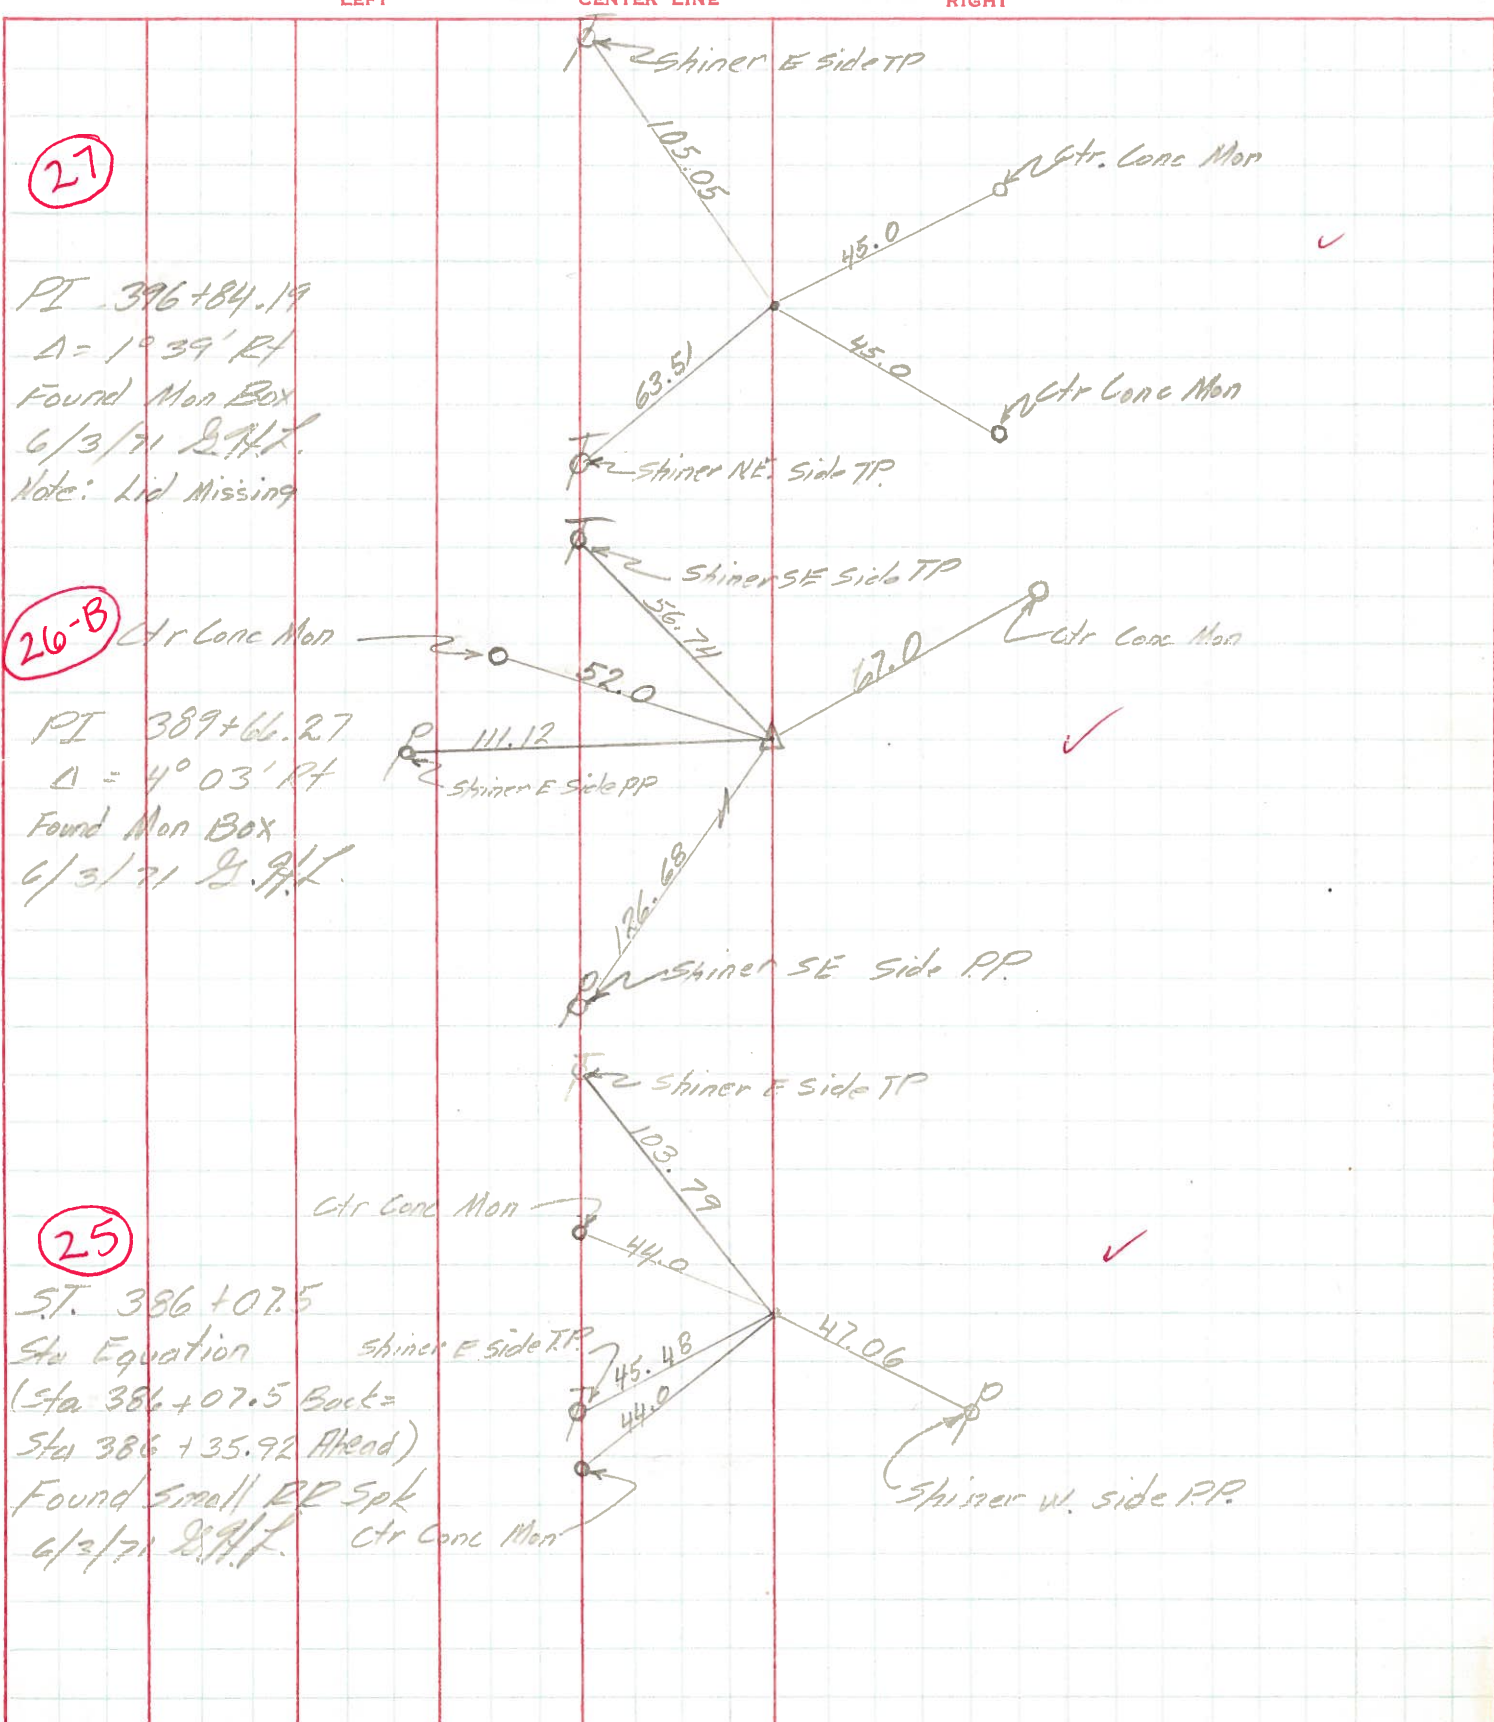 LEFT CENTER LINE RIGHT
Shiner E Side TP
105.05
27
Ctr. Conc Mon
45.0
PI 396+84.19
Δ = 1° 39' Rt
Found Mon Box
6/3/71 G.H.L.
Note: Lid Missing
63.51
45.0
Ctr Conc Mon
Shiner NE. Side TP.
Shiner SE Side TP
56.74
26-B
Ctr Conc Mon
52.0
67.0
Ctr Conc Mon
PI 389+66.27
Δ = 4° 03' Rt
Found Mon Box
6/3/71 G.H.L.
P
111.12
Shiner E Side PP
126.68
P
Shiner SE Side P.P.
T
Shiner E Side TP
103.79
25
Ctr Conc Mon
44.0
S.T. 386+07.5
Sta Equation
(Sta 386+07.5 Back=
Sta 386+35.92 Ahead)
Found Small RR Spk
6/3/71 G.H.L.
Shiner E side T.P.
45.48
44.0
Ctr Conc Mon
47.06
P
Shiner W. side P.P.